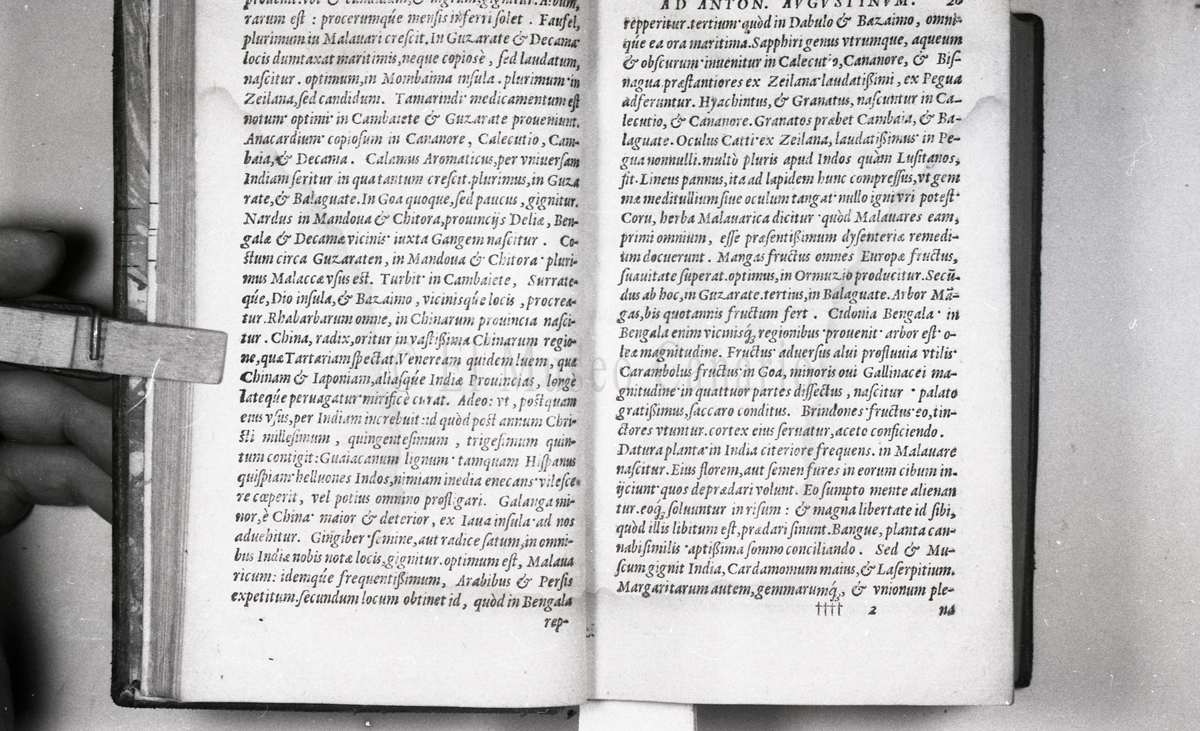 rarum est : procerumq́ue mensis inferri solet . Faufel,
plurimum in Malauari crescit. In Guzarate & Decamæ
locis dumtaxat maritimis, neque copiosè , sed laudatum,
nascitur . optimum, in Mombaima insula . plurimum in
Zeilana, sed candidum. Tamarindi medicamentum est
notum optimi in Cambaiete & Guzarate proueniunt.
Anacardium copiosum in Cananore, Calecutio, Cam-
baia, & Decama . Calamus Aromaticus, per vniuersam
Indiam seritur in qua tantum crescit. plurimus, in Guza
rate, & Balaguate. In Goa quoque, sed paucus , gignitur.
Nardus in Mandoua & Chitora, prouincijs Deliæ, Ben-
galæ & Decamæ vicinis iuxta Gangem nascitur . Co-
stum circa Guzaraten, in Mandoua & Chitora pluri-
mus Malaccæ vsus est. Turbit in Cambaiete, Surrate-
q́ue, Dio insula, & Bazaimo , vicinisq́ue locis , procrea-
tur. Rhabarbarum omne, in Chinarum prouincia nasci-
tur . China, radix, oritur in vastißima Chinarum regio-
ne, quæ Tartariam spectat. Veneream quidem luem , quæ
Chinam & Iaponiam, aliasq́ue Indiæ Prouincias, longè
lateq́ue peruagatur mirificè curat. Adeo: vt , postquam
eius vsus, per Indiam increbuit: id quòd post annum Chri-
sti millesimum , quingentesimum , trigesimum quin-
tum contigit: Guaiacanum lignum tamquam Hispanus
quispiam helluones Indos, nimiam inedia enecans vilesce-
re cœperit, vel potius omnino profligari. Galanga mi-
nor, è China maior & deterior, ex Iaua insula ad nos
aduehitur. Gingiber semine, aut radice satum, in omni-
bus Indiæ nobis notæ locis, gignitur. optimum est, Malaua
ricum: idemq́ue frequentißimum, Arabibus & Persis
expetitum. secundum locum obtinet id , quòd in Bengala
rep-
AD ANTON. AVGVSTINVM. 20
repperitur. tertium quòd in Dabulo & Bazaimo, omni-
q́ue ea ora maritima. Sapphiri genus vtrumque, aqueum
& obscurum inuenitur in Calecutio, Cananore, & Bis-
nagua præstantiores ex Zeilana laudatißimi , ex Pegua
adferuntur. Hyachintus, & Granatus, nascuntur in Ca-
lecutio, & Cananore. Granatos præbet Cambaia, & Ba-
laguate. Oculus Catti ex Zeilana, laudatißimus in Pe-
gua nonnulli. multò pluris apud Indos quàm Lusitanos,
fit. Lineus pannus, ita ad lapidem hunc compressus, vt gem
mæ meditullium siue oculum tangat nullo igni vri potest
Coru, herba Malauarica dicitur quòd Malauares eam,
primi omnium , esse præsentißimum dysenteriæ remedi-
um docuerunt . Mangas fructus omnes Europæ fructus,
suauitate superat. optimus, in Ormuzio producitur. Secũ-
dus ab hoc, in Guzarate. tertius, in Balaguate. Arbor Mã-
gas, bis quotannis fructum fert . Cidonia Bengala in
Bengala enim vicinisq́ regionibus prouenit arbor est o-
leæ magnitudine. Fructus aduersus alui profluuia vtilis
Carambolus fructus in Goa, minoris oui Gallinacei ma-
gnitudine in quattuor partes dissectus, nascitur palato
gratißimus, saccaro conditus. Brindones fructus eo, tin-
ctores vtuntur. cortex eius seruatur, aceto conficiendo .
Datura planta in India citeriore frequens. in Malauare
nascitur. Eius florem, aut semen fures in eorum cibum in-
ijciunt quos deprædari volunt. Eo sumpto mente alienan
tur. eoq́ soluuntur in risum : & magna libertate id sibi,
quòd illis libitum est, prædari sinunt. Bangue, planta can-
nabi similis aptißima somno conciliando . Sed & Mu-
scum gignit India, Cardamomum maius, & Laserpitium.
Margaritarum autem, gemmarumq́, & vnionum ple-
†††† 2 na